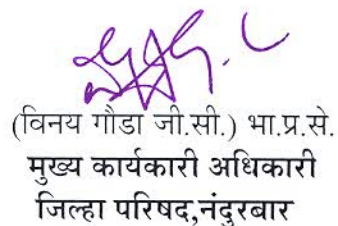 (विनय गौडा जी.सी.) भा.प्र.से.
मुख्य कार्यकारी अधिकारी
जिल्हा परिषद,नंदुरबार